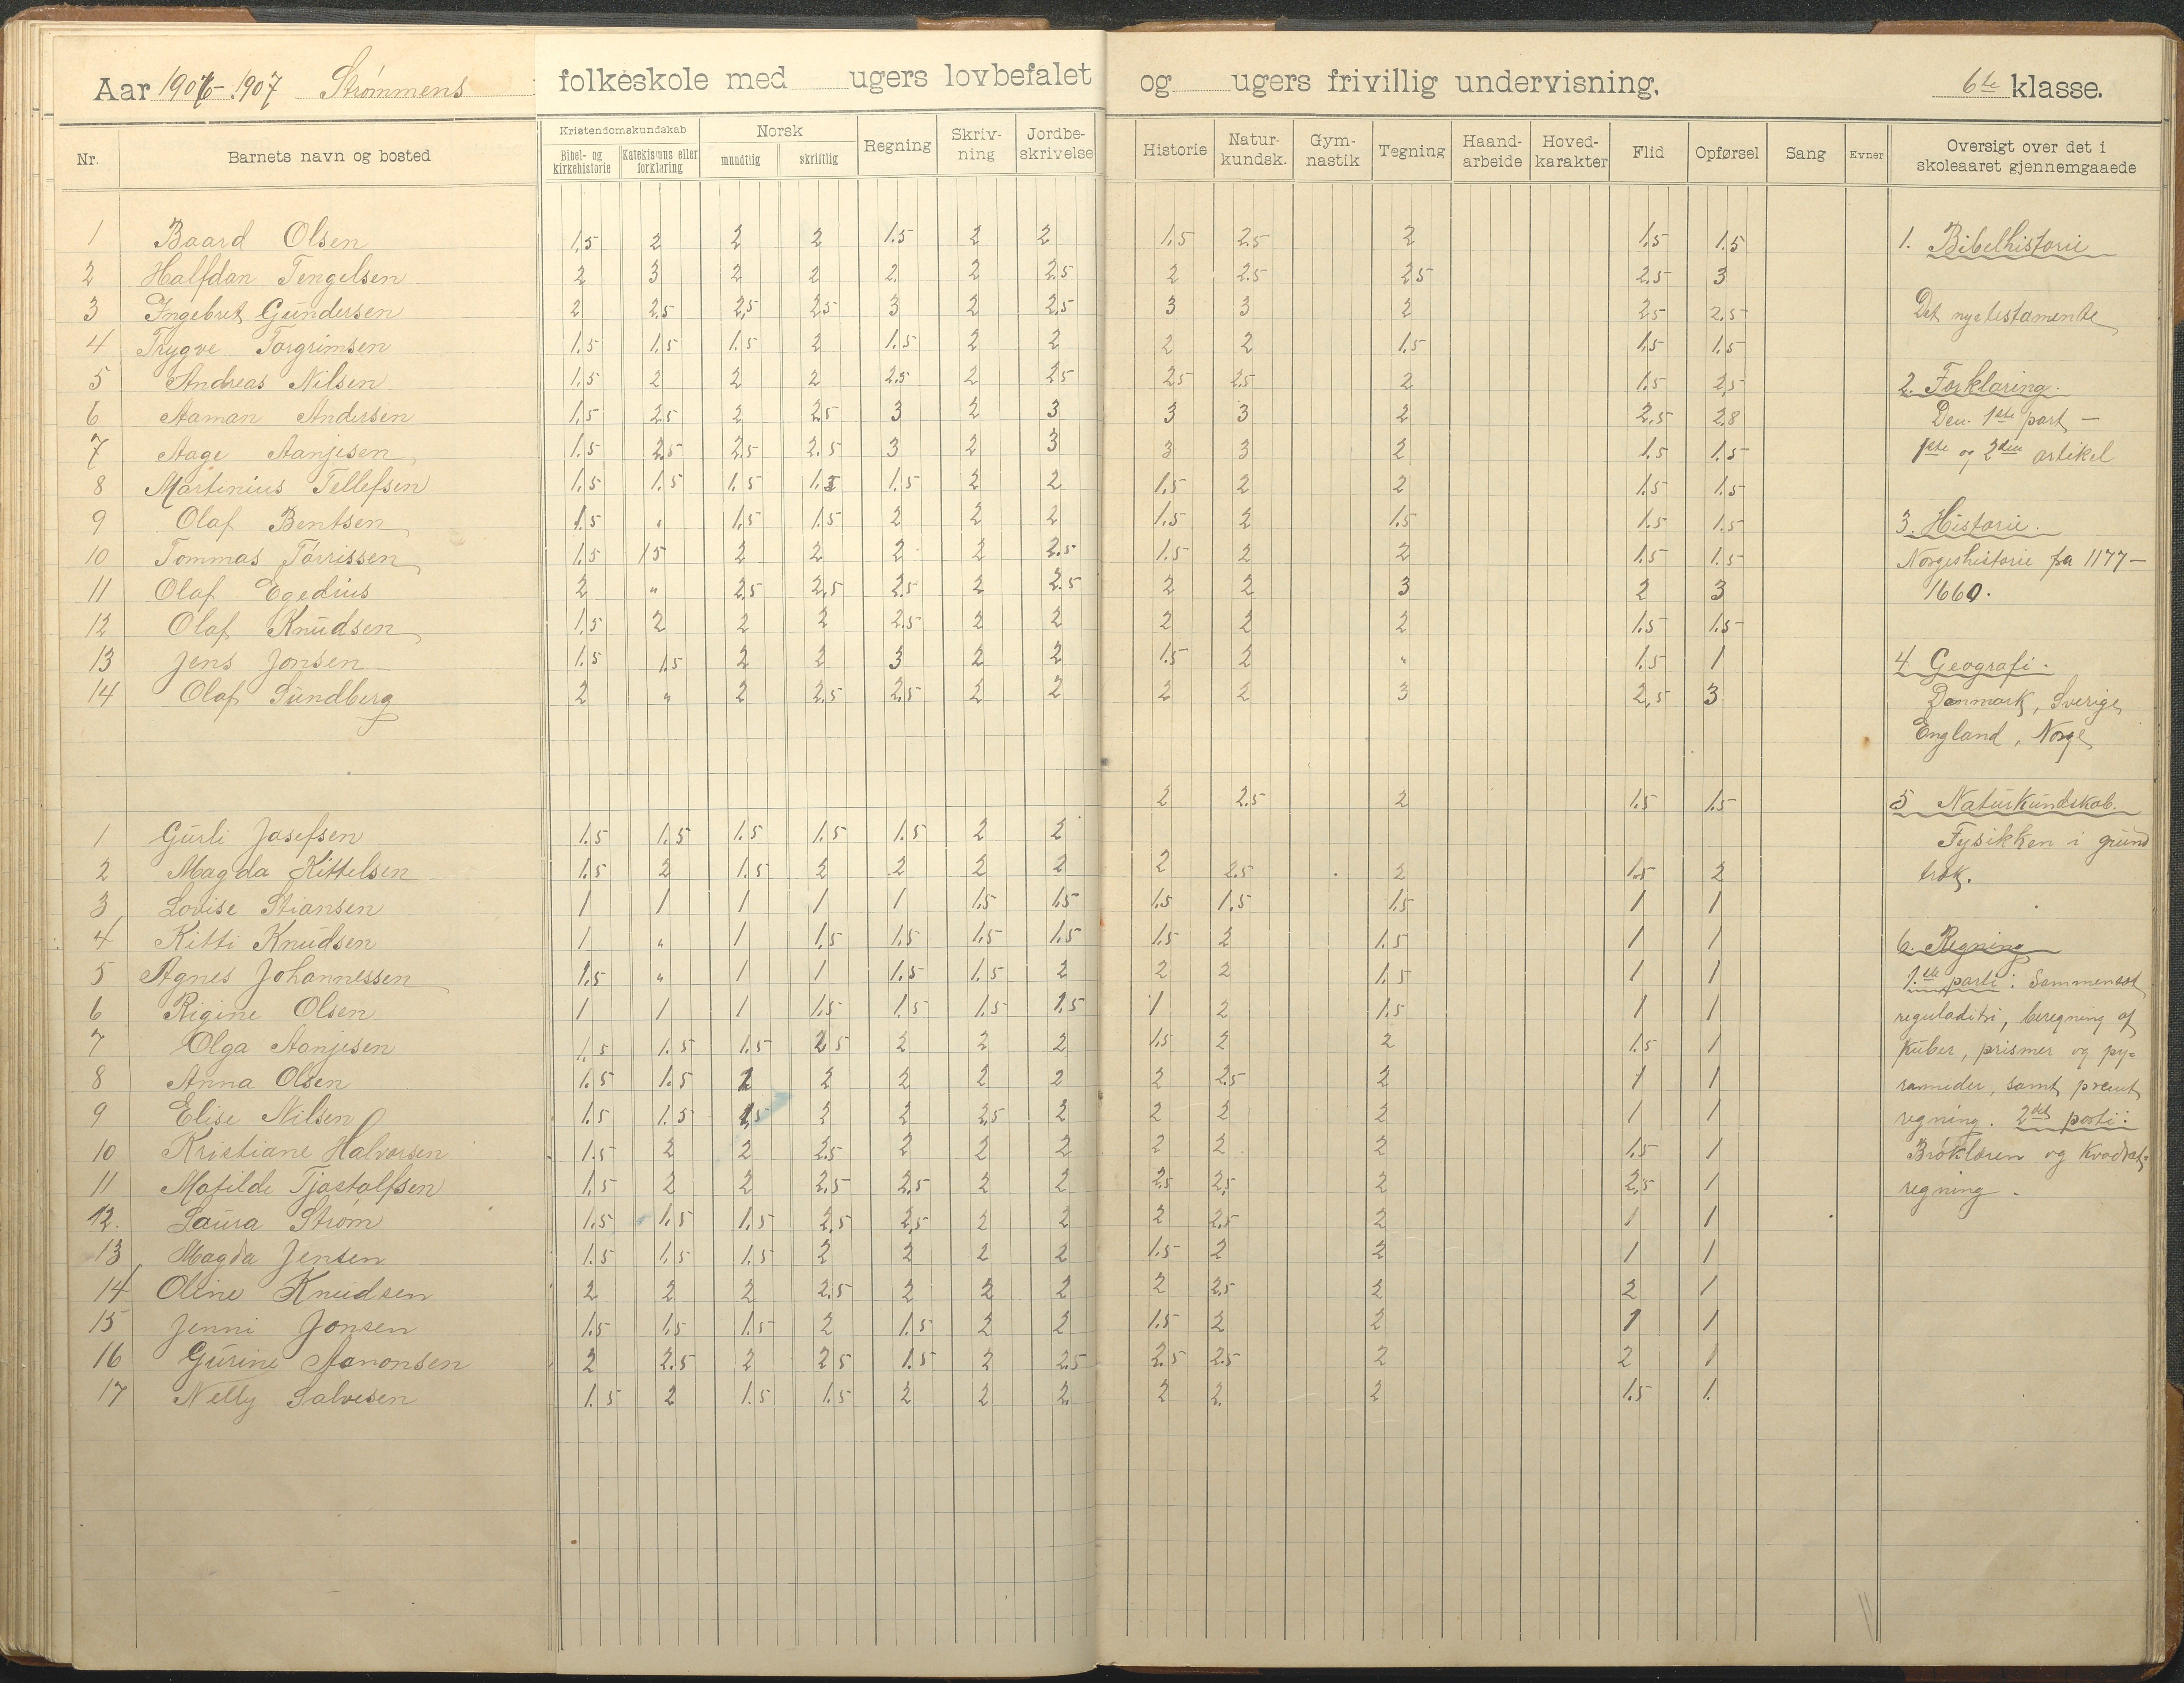 Aar 1906-1907 Strømmens folkeskole med ugers lovbefalet og ugers frivillig undervisning. 6te klasse.
Nr. Barnets navn og bosted Kristendomskundskab Bibel- og kirkehistorie Katekismus eller forklaring Norsk mundtlig skriftlig Regning Skriv-ning Jordbe-skrivelse Historie Natur-kundsk. Gym-nastik Tegning Haand-arbeide Hoved-karakter Flid Opførsel Sang Evner Oversigt over det i skoleaaret gjennemgaaede
1 Baard Olsen 1,5 2 2 2 1.5 2 2 1.5 2.5 2 1.5 1.5
2 Halfdan Tengelsen 2 3 2 2 2 2 2.5 2 2.5 2.5 2.5 3
3 Ingebret Gundersen 2 2.5 2,5 2.5 3 2 2.5 3 3 2 2.5 2.5
4 Trygve Torgrimsen 1.5 1.5 1.5 2 1.5 2 2 2 2 1.5 1.5 1.5
5 Andreas Nilsen 1.5 2 2 2 2.5 2 2.5 2.5 2.5 2 1.5 2,5
6 Aaman Andersen 1,5 2.5 2 2.5 3 2 3 3 3 2 2,5 2,8
7 Aage Aanjesen 1.5 2.5 2.5 2.5 3 2 3 3 3 2 1.5 1.5
8 Martinius Tellefsen 1.5 1.5 1.5 1.5 1.5 2 2 1.5 2 2 1.5 1.5
9 Olaf Bentsen 1.5 " 1.5 1.5 2 2 2 1.5 2 1.5 1.5 1.5
10 Tommas Tørrissen 1.5 1.5 2 2 2 2 2.5 1.5 2 2 1.5 1.5
11 Olaf Egedius 2 " 2.5 2.5 2.5 2 2.5 2 2 3 2 3
12 Olaf Knudsen 1,5 2 2 2 2.5 2 2 2 2 2 1.5 1.5
13 Jens Jonsen 1.5 1.5 2 2 3 2 2 1.5 2 " 1.5 1
14 Olaf Sundberg 2 " 2 2.5 2.5 2 2 2 2 3 2,5 3
1 Gurli Josefsen 1.5 1.5 1.5 1.5 1.5 2 2 2 2.5 2 1.5 1.5
2 Magda Kittelsen 1.5 2 1.5 2 2 2 2 2 2.5 2 1.5 2
3 Lovise Stiansen 1 1 1 1 1 1.5 1.5 1.5 1.5 1.5 1 1
4 Kitti Knudsen 1 " 1 1.5 1.5 1.5 1.5 1.5 2 1.5 1 1
5 Agnes Johannessen 1.5 " 1 1 1.5 1.5 2 2 2 1.5 1 1
6 Rigine Olsen 1 1 1 1.5 1.5 1.5 1.5 1 2 1.5 1 1
7 Olga Aanjesen 1.5 1.5 1.5 2.5 2 2 2 1.5 2 2 1.5 1
8 Anna Olsen 1.5 1.5 2 2 2 2 2 2 2.5 2 1 1
9 Elise Nilsen 1.5 1.5 1.5 2 2 2.5 2 2 2 2 1 1
10 Kristiane Halvorsen 1.5 2 2 2.5 2 2 2 2 2 2 1.5 1
11 Matilde Tjøstolfsen 1.5 2 2 2.5 2.5 2 2 2.5 2.5 2 2.5 1
12. Laura Strøm 1.5 1.5 1.5 2.5 2.5 2 2 2 2.5 2 1 1
13 Magda Jensen 1.5 1.5 1.5 2 2 2 2 1.5 2 2 1 1
14 Oline Knudsen 2 2 2 2.5 2 2 2 2 2.5 2 2 1
15 Jenni Jonsen 1.5 1.5 1.5 2 1.5 2 2 1.5 2 2 1 1
16 Gurine Aanonsen 2 2.5 2 2.5 1.5 2 2.5 2.5 2.5 2 2 1
17 Nelly Salvesen 1.5 2 1.5 1.5 2 2 2 2 2. 2 1.5 1.
1. Bibelhistorie
Det nye testamente
2. Forklaring.
Den 1ste part —
1ste og 2den artikel
3. Historie.
Norgeshistorie fra 1177 –
1660.
4 Geografi.
Danmark, Sverige,
England, Norge
5 Naturkundskab.
Fysikken i grund
træk.
6. Regning
1.ste parti: Sammensat
reguladitri, beregning af
Kuber, prismer og py-
ramider, samt
regning. 2det parti:
Brøklæren og Kvadrat-
regning.